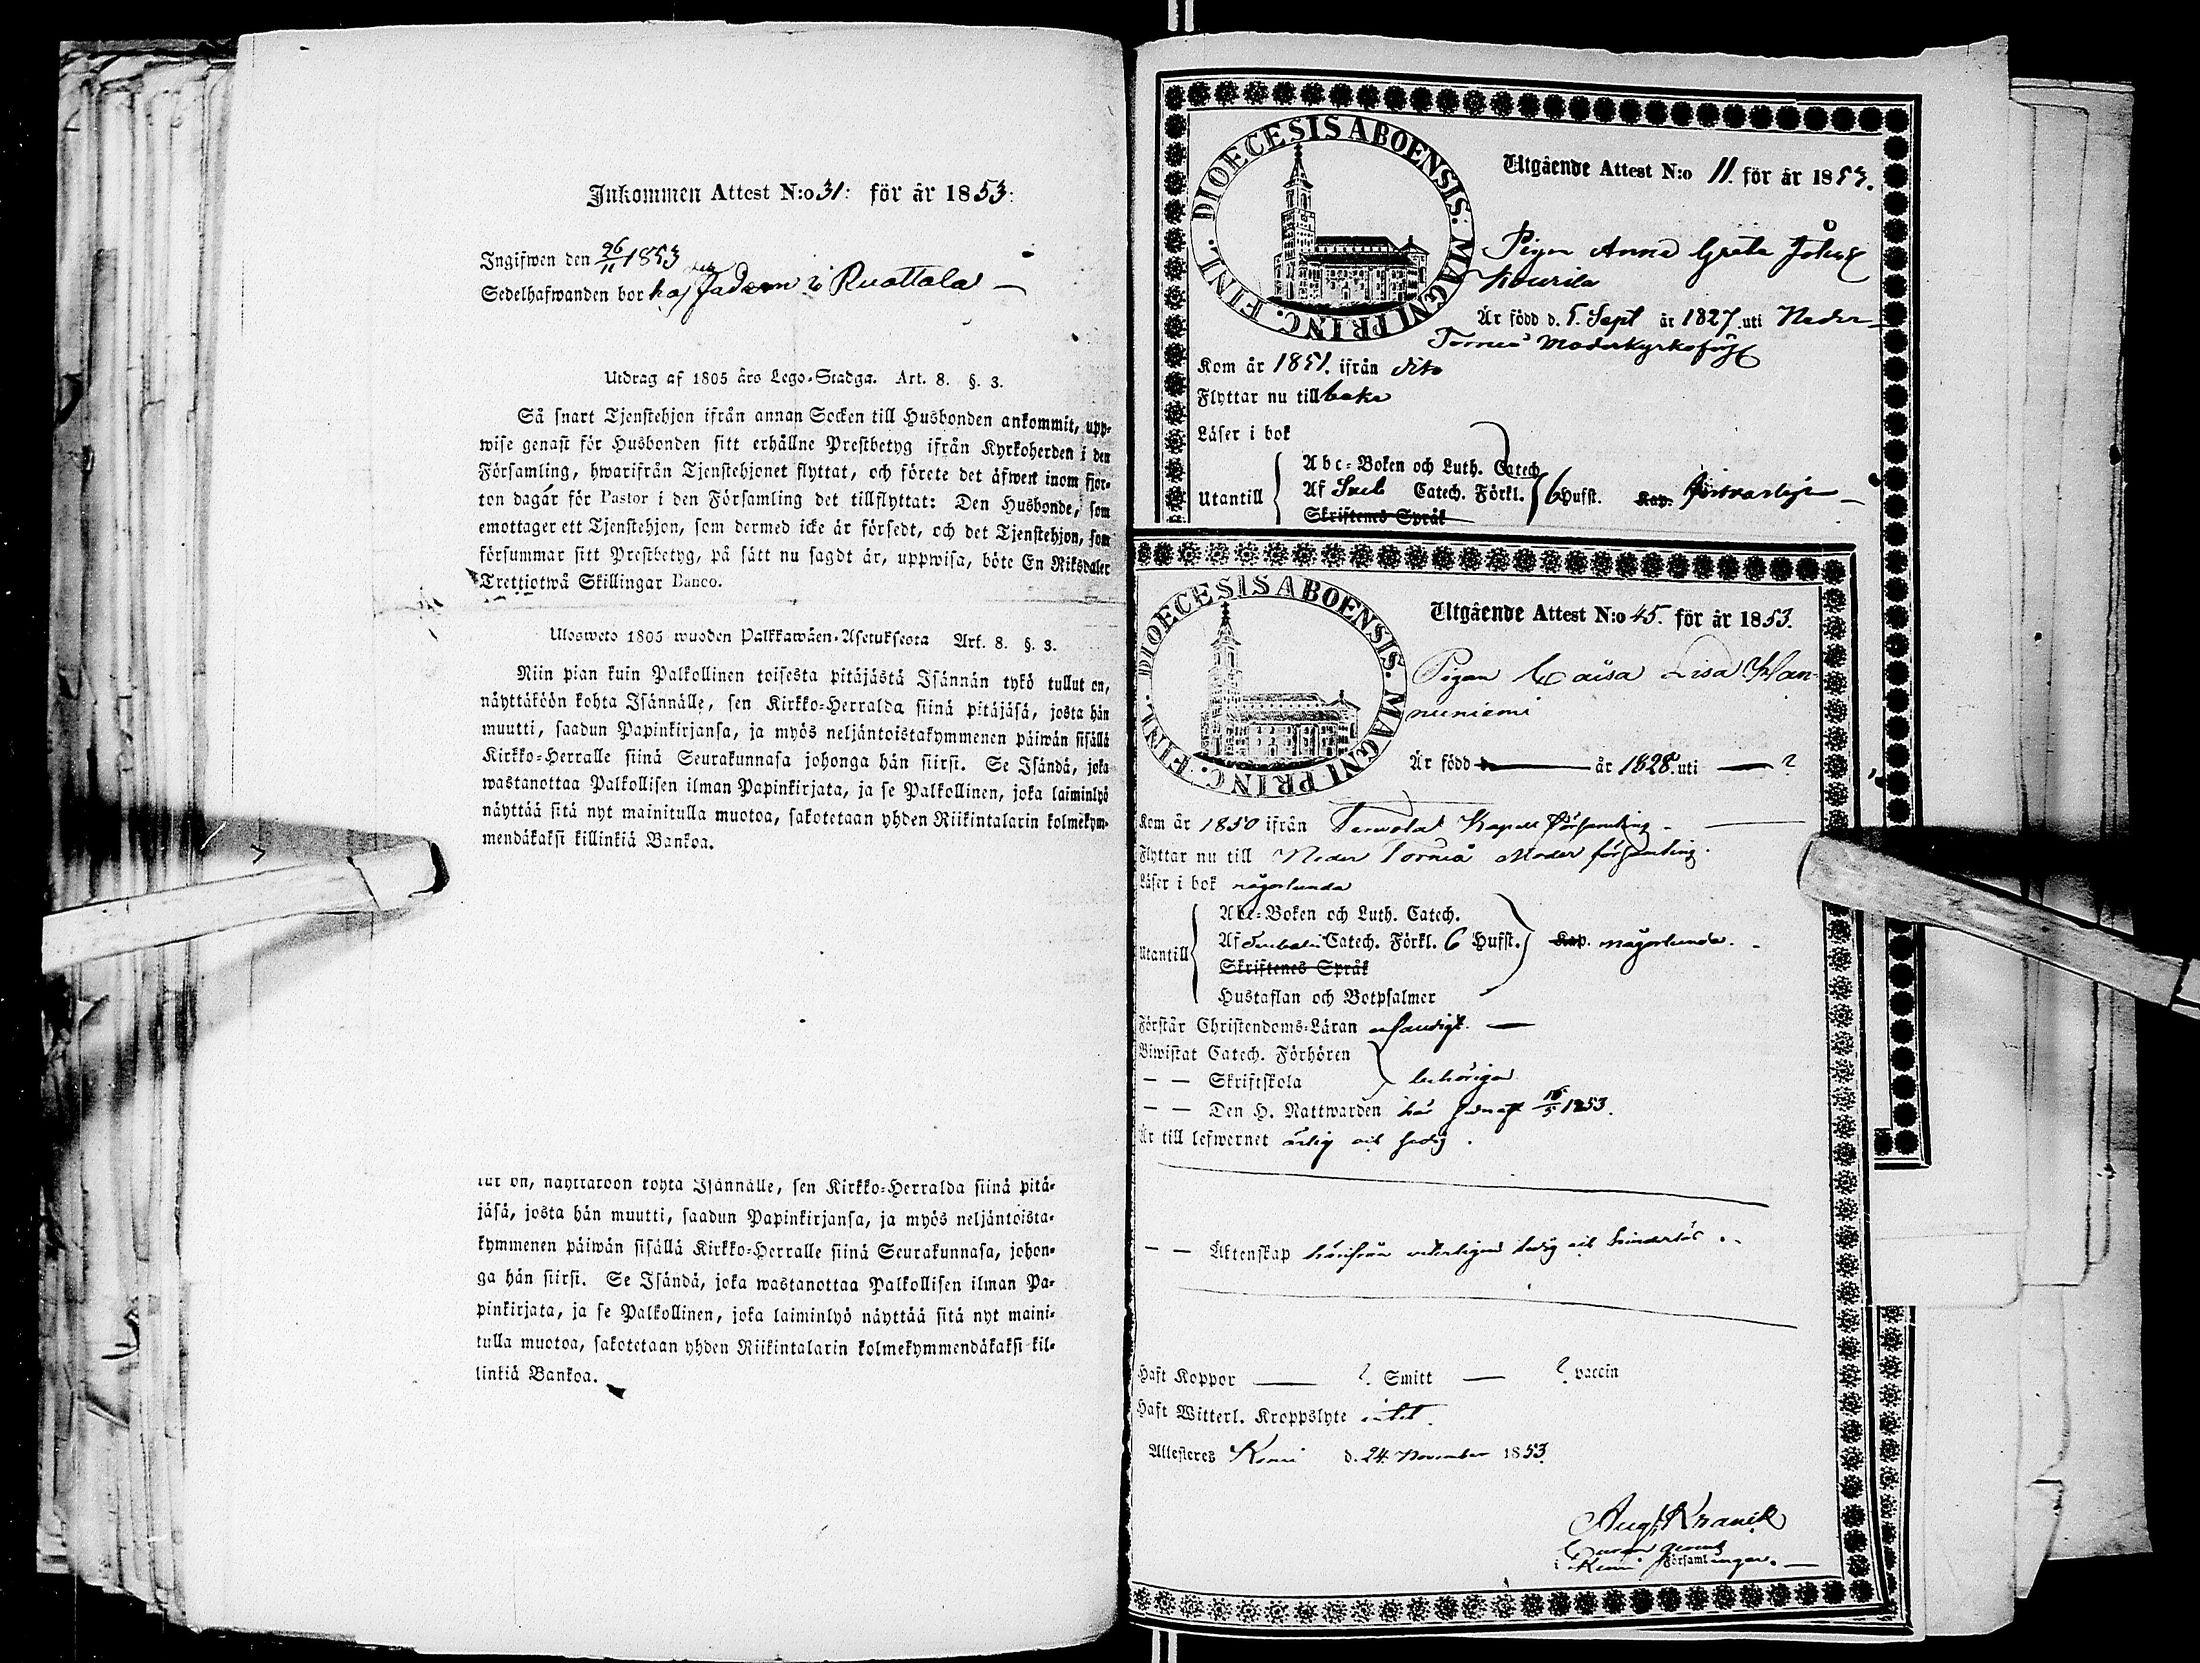 Inkommen Attest N:o 31: för år 1853:
Ingifwen den 26/11 1853
Sedelhafwanden bor hos fadern i Ruottala
Utdrag af 1805 års Lego-Stadga. Art. 8. §. 3.
Så snart Tjenstehjon ifrån annan Socken till Husbonden ankommit, upp-
wise genast för Husbonden sitt erhållne Prestbetyg ifrån Kyrkoherden i den
Församling, hwarifrån Tjenstehjonet flyttat, och förete det äfwen inom fjor-
ton dagar för Pastor i den Församling det tillflyttat: Den Husbonde, som
emottager ett Tjenstehjon, som dermed icke är försedt, och det Tjenstehjon, som
försummar sitt Prestbetyg, på sätt nu sagdt är, uppwisa, böte En Riksdaler
Trettiotwå Skillingar Banco.
Ulosweto 1805 wuoden Palkkawäen-Asetuksesta Art. 8. §. 3.
Niin pian kuin Palkollinen toisesta pitäjästä Isännän tykö tullut on,
näyttäköön kohta Isännälle, sen Kirkko-Herralda siinä pitäjäsä, josta hän
muutti, saadun Papinkirjansa, ja myös neljäntoistakymmenen päiwän sisällä
Kirkko-Herralle siinä Seurakunnasa johonga hän siirsi. Se Isändä, joka
wastanottaa Palkollisen ilman Papinkirjata, ja se Palkollinen, joka laiminlyö
näyttää sitä nyt mainitulla muotoa, sakotetaan yhden Riikintalarin kolmekym-
mendäkaksi killinkiä Bankoa.
tut on, näyttäköön kohta Isännälle, sen Kirkko-Herralda siinä pitä-
jäsä, josta hän muutti, saadun Papinkirjansa, ja myös neljäntoista-
kymmenen päiwän sisällä Kirkko-Herralle siinä Seurakunnasa, johon-
ga hän siirsi. Se Isändä, joka wastanottaa Palkollisen ilman Pa-
pinkirjata, ja se Palkollinen, joka laiminlyö näyttää sitä nyt maini-
tulla muotoa, sakotetaan yhden Riikintalarin kolmekymmendäkaksi kil-
linkiä Bankoa.
DIOECESIS ABOENSIS. MAGNI PRINC. FINL.
Utgående Attest N:o 11. för år 1853.
Pigan Anna Greta Johsd
Kourila
Är född d. 5. Sept år 1827. uti Neder
Torneå Moderkyrkoförs
Kom år 1851. ifrån dito
Flyttar nu till baka
Läser i bok
Abc-Boken och Luth. Catech.
Utantill Af Sveb Catech. Förkl. 6 Hufst. Kap. försvarligen
Skriftenes Språk
DIOECESIS ABOENSIS. MAGNI PRINC. FINL.
Utgående Attest N:o 45. för år 1853.
Pigan Caisa Lisa Han-
nuniemi
Är född år 1828. uti ?
Kom år 1850 ifrån Tervola Kapell Församling
Flyttar nu till Neder Torneå Moder församling.
Läser i bok någorlunda
Abc-Boken och Luth. Catech.
Utantill Af Svebelii Catech. Förkl. 6 Hufst. Kap. någorlunda.
Skriftenes Språk
Hustaflan och Botpsalmer
Förstår Christendoms-Läran enfaldigt.
Biwistat Catech. Förhören
— — Skriftskola behörigen
— — Den H. Nattwarden här senast 15/5 1853.
Är till lefwernet ärlig och sedig.
— — Äktenskap härifrån veterligen ledig och hinderlös.
Haft Koppor ?. Smitt ?. vaccin
Haft Witterl. Kroppslyte intet.
Attesteres Kemi d. 24 November 1853.
Aug. Kranck
i Kemi Församlingar.